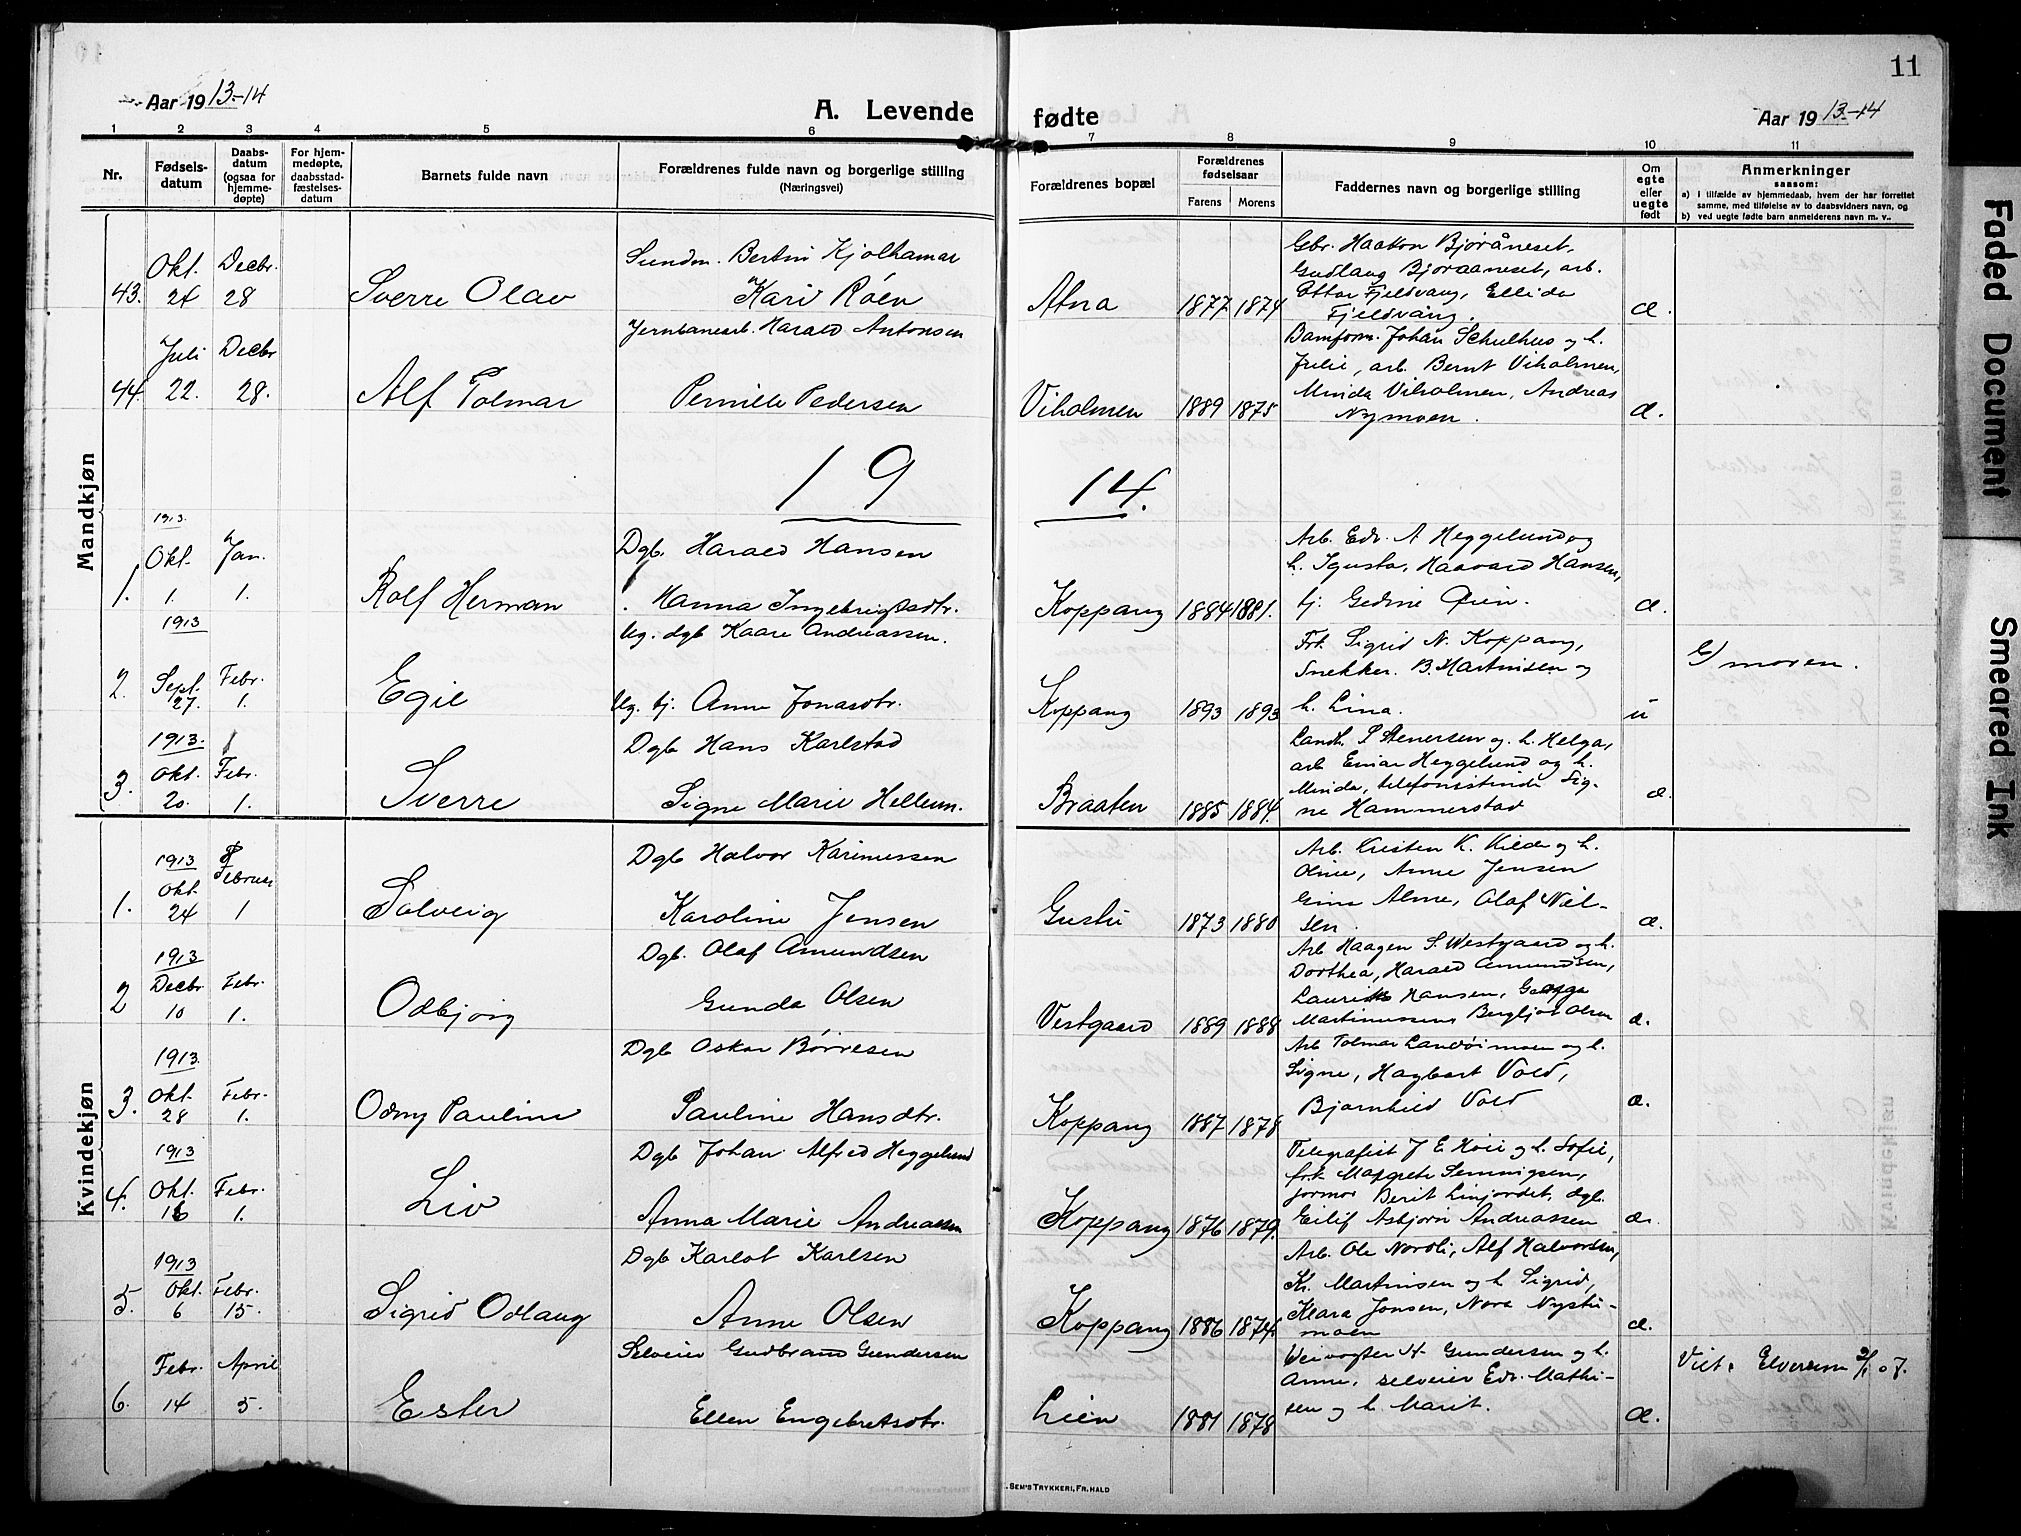 11
Aar 1913-14
A. Levende
fødte
Aar 1913-14
1 2 3 4 5 6 7 8 9 10 11
Nr.
Fødsels-
datum
Daabs-
datum
(ogsaa for
hjemme-
døpte)
For hjem-
medøpte,
daabsstad-
fæstelses-
datum
Barnets fulde navn
Forældrenes fulde navn og borgerlige stilling
(Næringsvei)
Forældrenes bopæl
Forældrenes
fødselsaar
Farens Morens
Faddernes navn og borgerlige stilling
Om
egte
eller
uegte
født
Anmerkninger
saasom:
a) i tilfælde av hjemmedaab, hvem der har forrettet
samme, med tilføielse av to daabsvidners navn, og
b) ved uegte fødte barn anmelderens navn m. v.
Mandkjøn
43. Okt. 24 Decbr. 28
Sverre Olav
Bertin Kjølhamar
Kari Røen
Atna 1877 1874
Gbr. Haakon Bjøråneset,
Gudlaug Bjøraaneset, arb.
Ottar Fjeldvang, Ellida
Fjeldvang.
æ.
44. Juli 22. Decbr 28.
Alf Tolmar
Jernbanearb. Harald Antonsen
Pernille Pedersen
Viholmen 1889 1875
Banform. Johan Schulhus og h.
Julie, arb Bernt Viholmen,
Minda Viholmen, Andreas
Nymoen.
æ.
19 14.
1. 1913. Okt. 1 Jan. 1.
Rolf Herman
Dgb. Harald Hansen
Hanna Ingebrigtsdtr.
Koppang 1884 1881.
Arb. Edv. A Heggelund og
h. Igusta, Haavard Hansen,
tj. Gedine Øien.
æ.
2. 1913 Sept. 27. Febr. 1.
Egil
Ug. dgb Kaare Andreassen.
Ug. tj. Anne Jonasdtr.
Koppang 1893 1893
Frk. Sigrid N. Koppang,
Snekker. B. Martinsen og
h. Lina.
u
moren.
3. 1913. Okt. 20. Febr. 1.
Sverre
Dgb Hans Karlstad
Signe Marie Hellum.
Braaten 1885 1884.
Landh. P Stenersen og h. Helga,
arb Einar Heggelund og h.
Minda, telefonistinde Sig-
ne Hammerstad
æ.
Kvindekjøn
1. 1913 Okt. 24 Februar 1
Solveig
Dgb Halvor Rasmussen
Karoline Jensen
Gustu 1873 1880
Arb. Kristen K. Kilde og h.
Oline, Anne Jensen
Alme, Olaf Niel-
sen.
æ.
2 1913 Decbr 10 Febr. 1.
Odbjørg
Dgb. Olaf Amundsen
Gunda Olsen
Vestgaard 1889 1888
Arb Haagen S. Westgaard og h.
Dorthea, Harald Amundsen,
Hansen,
Martinussen, Bergljot Olsen
æ.
3. 1913. Okt. 28 Febr. 1.
Odny Pauline
Dgb Oskar Børresen
Pauline Hansdtr.
Koppang 1887 1878
Arb Tolmar Landsimoen og h.
Signe, Hagbart Vold,
Bjarnhild Vold
æ.
4. 1913 Okt. 16 Febr. 1.
Liv
Dgb Johan Alfred Heggelund
Anna Marie Andreassen
Koppang 1876 1879.
Telegrafist J E Høie og h. Sofie,
frk Margrete Semmigsen,
jormor Berit Linjordet, dgb.
Eilif Asbjørn Andreassen
æ.
5. 1913 Okt. 6 Febr. 15.
Sigrid Odlaug
Dgb Karlot Karlsen
Anne Olsen
Koppang 1886 1874.
Arb. Ole Nordli, Alf Halvorsen,
Kr. Martinsen og h Sigrid,
Klara Jonsen, Nora Nystu-
moen
æ.
6. Febr. 14 April 5.
Ester
Selveier Gudbrand Gundersen
Ellen Engebretsdtr.
Lien 1881 1878
Veivogter H. Gundersen og h.
Anne, selveier Edv. Mathi-
sen og h. Marit.
æ.
Viet i Elverum 2/1 07.
SEM'S TRYKKERI, FR. HALD
Faded Document
Smeared Ink